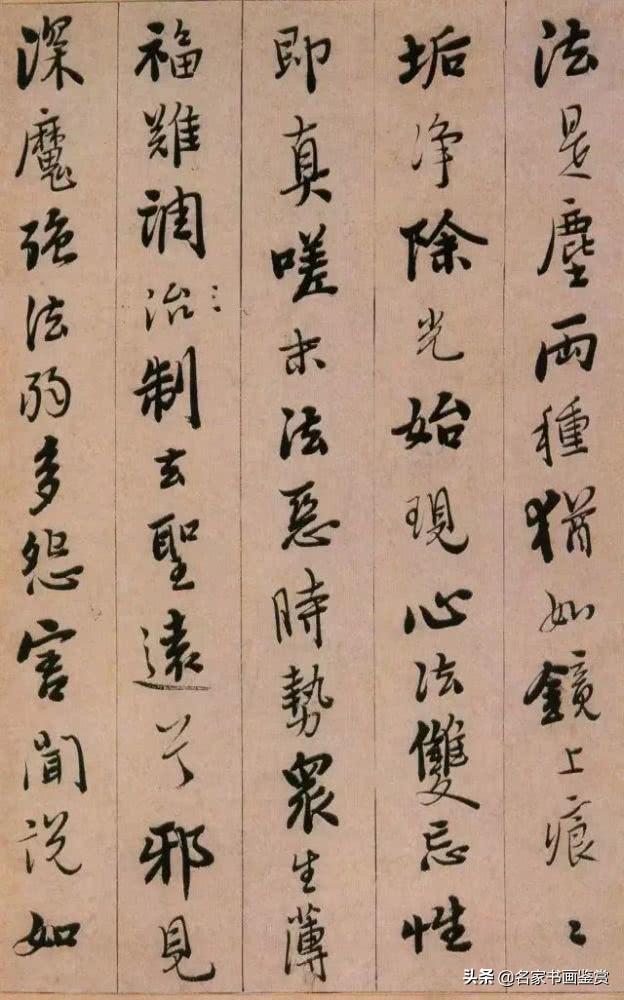 法是塵兩種猶如鏡上痕〻
垢净除光始現心法雙忘性
即真嗟末法惡時勢衆生薄
福難調治制去聖遠兮邪見
深魔強法弱多怨害聞説如
头条 @名家书画鉴赏